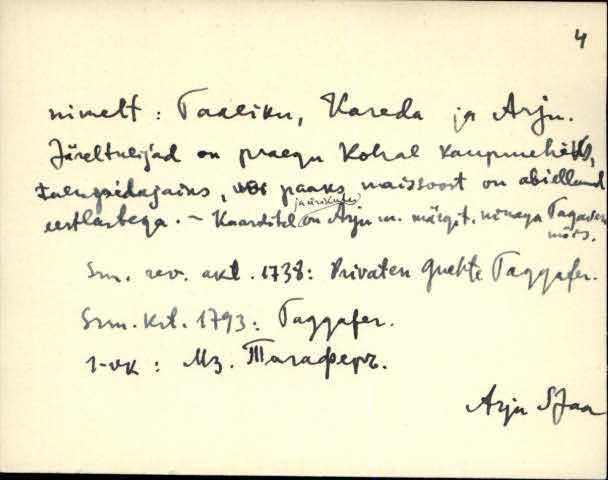 4
nimelt : Taaliku, Kareda ja Arju.
Järeltulijad on praegu kohal kaupmehiks,
talupidajaiks, paaks, naissoost on abiellunud
eestlastega. – Kaarditel on Arju m. märgit. nimega Tagavere
mõis.
Srn. rev. akt. 1738: Privaten Guehte Taggafer.
Srm. krt. 1793: Taggafer.
1-vk : Мз. Тагаферъ.
Arju SJaa